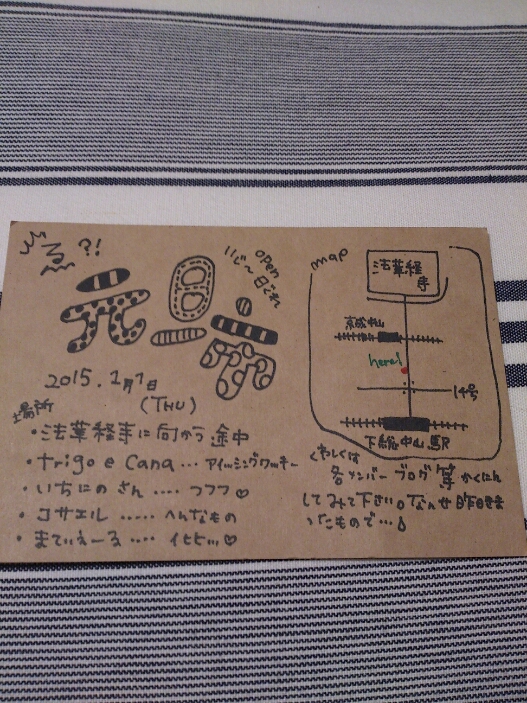 ざる〜?!
元旦市
open
11じ〜日ぐれ
2015.1月1日
(THU)
場所
・法華経寺に向かう途中
・trigo e cana…アイシングクッキー
・いちにの さん…… フフフ♡
・コサエル …… へんなもの
・まてぃえーる …… イヒヒッ♡
map
法華経寺
京成中山
here!
14号
下総中山駅
くわしくは
各メンバー ブログ等 かくにん
してみて下さい。なんせ昨日きま
ったもので…